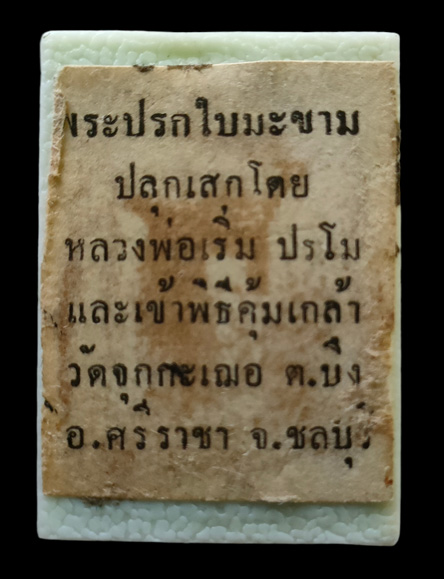 พระปรกใบมะขาม
ปลุกเสกโดย
หลวงพ่อเริ่ม ปรโม
และเข้าพิธีคุ้มเกล้า
วัดจุกกะเฌอ ต.บึง
อ.ศรีราชา จ.ชลบุรี